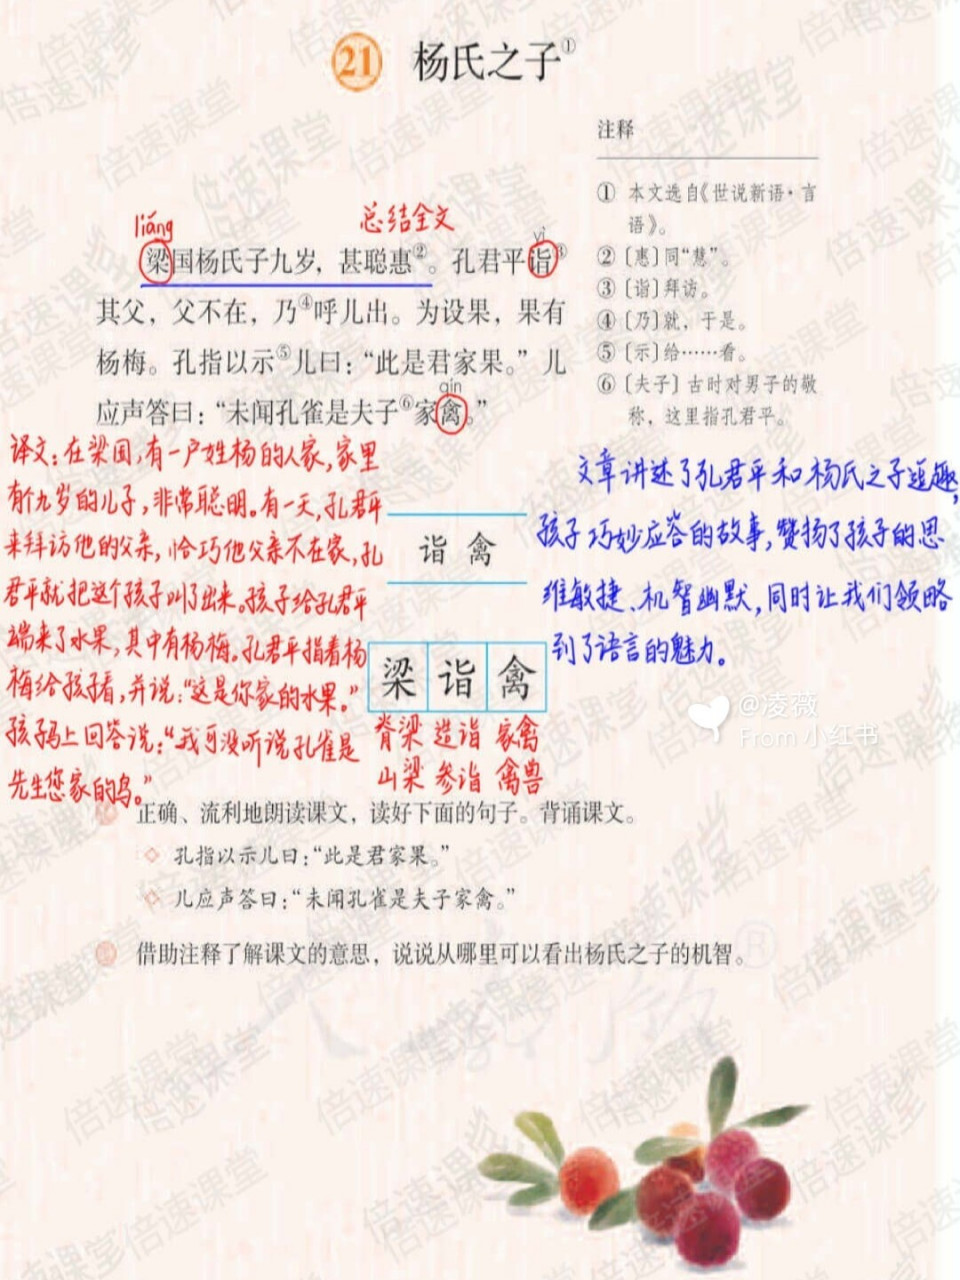 21 杨氏之子①
注释
① 本文选自《世说新语·言
语》。
② 〔惠〕同“慧”。
③ 〔诣〕拜访。
④ 〔乃〕就，于是。
⑤ 〔示〕给……看。
⑥ 〔夫子〕古时对男子的敬
称，这里指孔君平。
liáng
总结全文
yì
梁国杨氏子九岁，甚聪惠②。孔君平诣③
其父，父不在，乃④呼儿出。为设果，果有
杨梅。孔指以示⑤儿曰：“此是君家果。”儿
qín
应声答曰：“未闻孔雀是夫子⑥家禽。”
译文：在梁国，有一户姓杨的人家，家里
有个九岁的儿子，非常聪明。有一天，孔君平
来拜访他的父亲，恰巧他父亲不在家，孔
君平就把这个孩子叫了出来。孩子给孔君平
端来了水果，其中有杨梅。孔君平指着杨
梅给孩子看，并说：“这是你家的水果。”
孩子马上回答说：“我可没听说孔雀是
先生您家的鸟。”
诣 禽
梁 诣 禽
脊梁 造诣 家禽
山梁 参诣 禽兽
文章讲述了孔君平和杨氏之子逗趣，
孩子巧妙应答的故事，赞扬了孩子的思
维敏捷、机智幽默，同时让我们领略
到了语言的魅力。
@凌薇
From 小红书
正确、流利地朗读课文，读好下面的句子。背诵课文。
孔指以示儿曰：“此是君家果。”
儿应声答曰：“未闻孔雀是夫子家禽。”
借助注释了解课文的意思，说说从哪里可以看出杨氏之子的机智。
倍速课堂